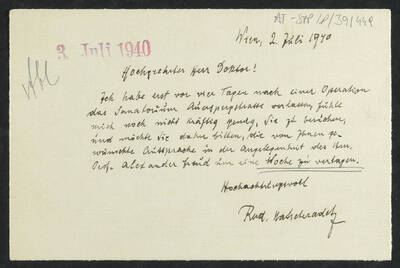 AT-StP LP/39/449
3. Juli 1940
Wien, 2. Juli 1940
Hochgeehrter Herr Doktor!
Ich habe erst vor vier Tagen nach einer Operation
das Sanatorium Auerspergstrasse verlassen, fühle
mich noch nicht kräftig genug, Sie zu besuchen,
und möchte Sie daher bitten, die von Ihnen ge-
wünschte Aussprache in der Angelegenheit des Hrn.
Prof. Alexander Freud um eine Woche zu vertagen.
Hochachtungsvoll
Rud.